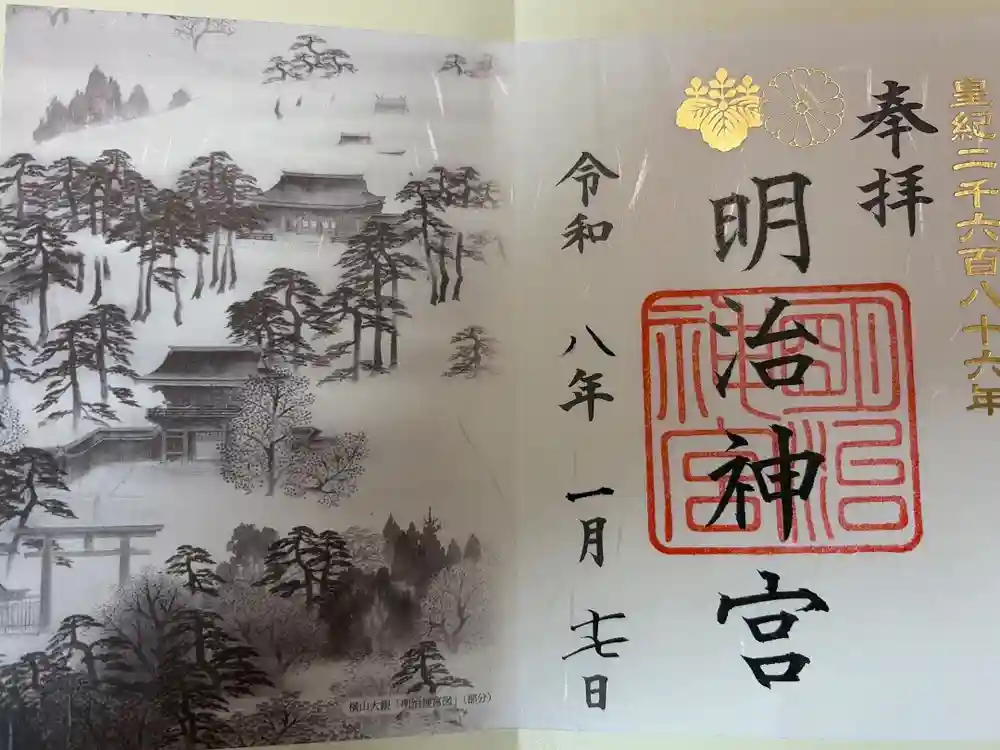 皇紀二千六百八十六年
奉拝
明治神宮
明治神宮
令和 八年 一月 七日
横山大観「明治神宮図」(部分)